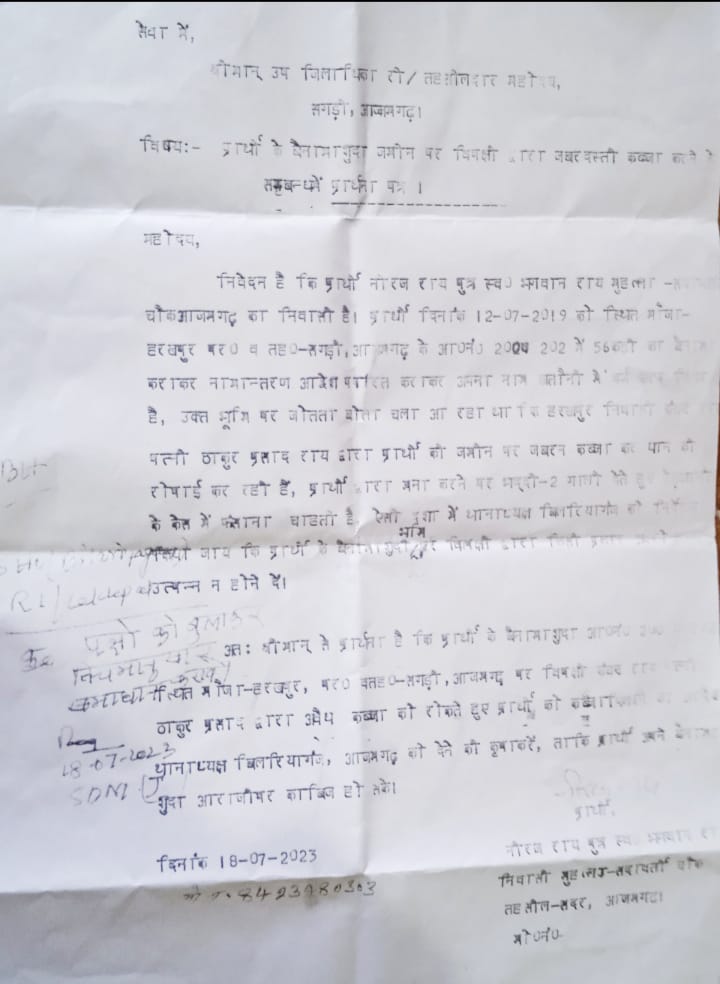 सेवा में,
श्रीमान् उप जिलाधिकारी/ तहसीलदार महोदय,
सगड़ी, आजमगढ़।
विषय:- प्रार्थी के बैनामाशुदा जमीन पर विपक्षी द्वारा जबरदस्ती कब्जा करने के
सम्बन्ध में प्रार्थना पत्र ।
महोदय,
निवेदन है कि प्रार्थी नीरज राय पुत्र स्व0 भगवान राय मुहल्ला -सदावर्ती
चौक आजमगढ़ का निवासी है। प्रार्थी दिनांक 12-07-2019 को स्थित मौजा-
हरखपुर पर0 व तह0-सगड़ी, आजमगढ़ के आ0नं0 202 में 56कड़ी का बैनामा
कराकर नामान्तरण आदेश पारित कराकर अपना नाम खतौनी में दर्ज
है, उक्त भूमि पर जोतता बोता चला आ रहा था कि हरखपुर निवासी
पत्नी ठाकुर प्रसाद राय द्वारा प्रार्थी की जमीन पर जबरन कब्जा कर धान की
रोपाई कर रही है, प्रार्थी द्वारा मना करने पर भद्दी-2 गाली देते हुए
के केस में फंसाना चाहती है, ऐसी दशा में थानाध्यक्ष बिलरियागंज को
जाय कि प्रार्थी के बैनामा शुदा भूमि पर विपक्षी द्वारा किसी प्रकार
उत्पन्न न होने दें।
अत: श्रीमान् से प्रार्थना है कि प्रार्थी के बैनामाशुदा आ0नं0
स्थित मौजा-हरखपुर, पर0 व तह0-सगड़ी, आजमगढ़ पर विपक्षी राय पत्नी
ठाकुर प्रसाद द्वारा अवैध कब्जा को रोकते हुए प्रार्थी को
थानाध्यक्ष बिलरियागंज, आजमगढ़ को देने की कृपा करें, ताकि प्रार्थी अपने बैनामा
शुदा आराजी पर काबिज हो सके।
पक्षों को बुलाकर
नियमानुसार
समाधान करावें
18-07-2023
SDM
दिनांक 18-07-2023
मो0नं0 8423980303
प्रार्थी,
नीरज राय पुत्र स्व0 भगवान राय
निवासी मुहल्ला-सदावर्ती चौक
तहसील-सदर, आजमगढ़।
मो0नं0-